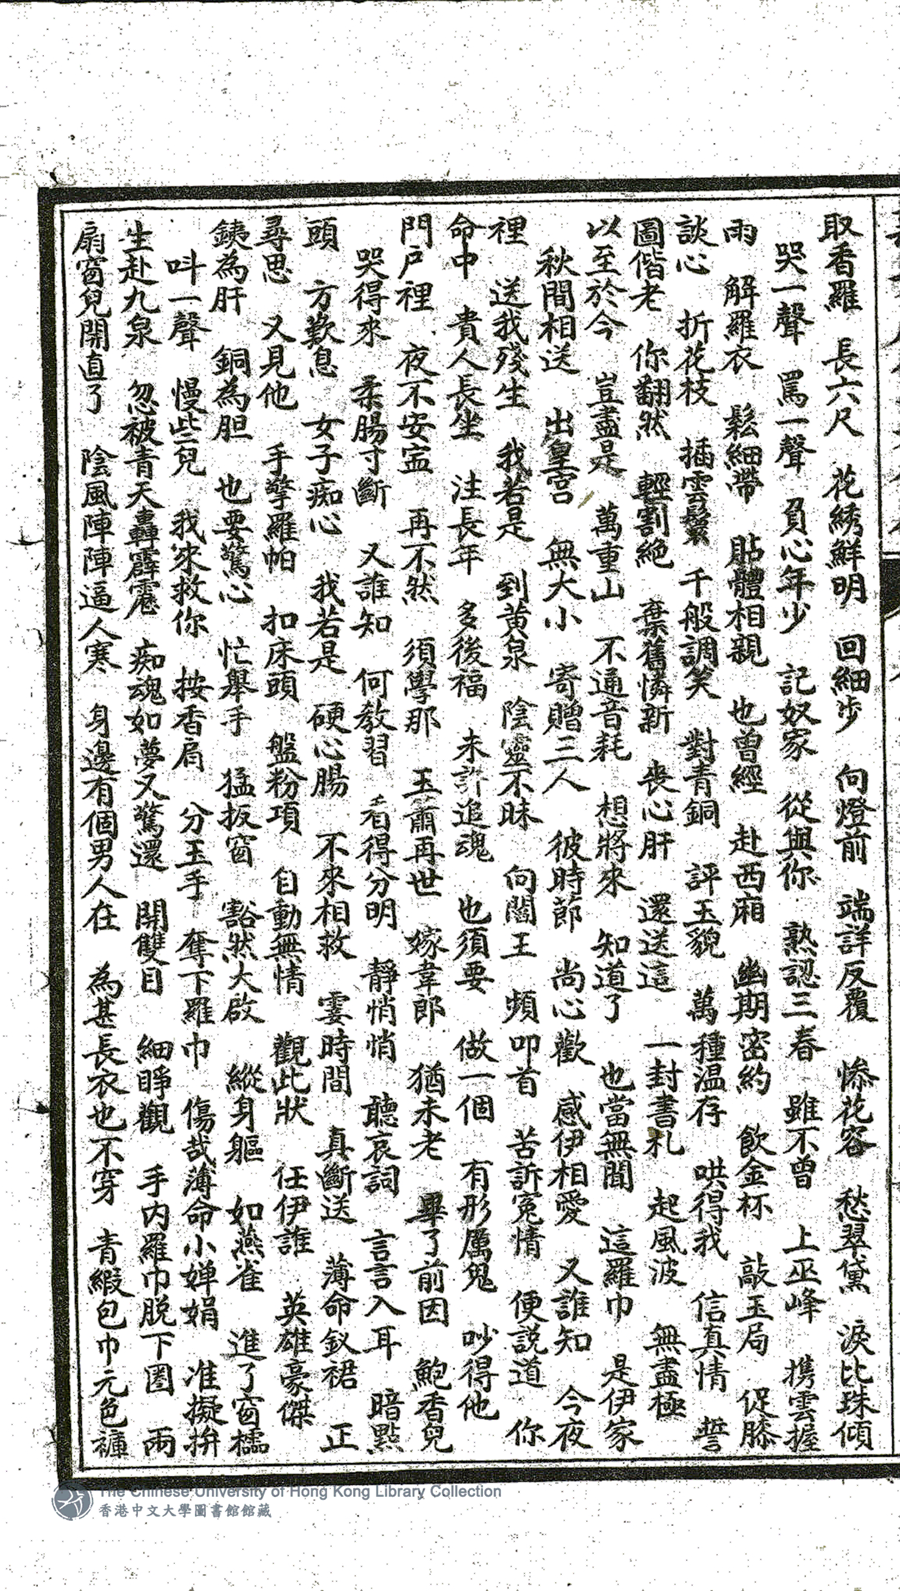 取香羅　長六尺　花綉鮮明　回細步　向燈前　端詳反覆　慘花容　愁翠黛　淚比珠傾
哭一聲　罵一聲　負心年少　記奴家　從與你　熟認三春　雖不曾　上巫峰　携雲握
雨　解羅衣　鬆細帶　貼體相親　也曾經　赴西廂　幽期密約　飲金杯　敲玉局　促膝
談心　折花枝　插雲鬟　千般調笑　對青銅　評玉貌　萬種温存　哄得我　信真情　誓
圖偕老　你翻然　輕割絶　棄舊憐新　喪心肝　還送這　一封書札　起風波　無盡極
以至於今　豈盡是　萬重山　不通音耗　想將來　知道了　也當無聞　這羅巾　是伊家
秋間相送　出皇宫　無大小　寄贈三人　彼時節　尚心歡　感伊相愛　又誰知　今夜
裡　送我殘生　我若是　到黄泉　陰靈不昧　向閻王　頻叩首　苦訴冤情　便説道　你
命中　貴人長坐　注長年　多後福　未許追魂　也須要　做一個　有形厲鬼　吵得他
門户裡　夜不安寍　再不然　須學那　玉蕭再世　嫁韋郎　猶未老　畢了前因　鮑香兒
哭得來　柔腸寸斷　又誰知　何教習　看得分明　靜悄悄　聽哀詞　言言入耳　暗點
頭　方歎息　女子痴心　我若是　硬心腸　不來相救　霎時間　真斷送　薄命釵裙　正
尋思　又見他　手擎羅帕　扣床頭　盤粉項　自動無情　觀此狀　任伊誰　英雄豪傑
銕為肝　銅為胆　也要驚心　忙舉手　猛扳窗　豁然大啟　縱身軀　如燕雀　進了窗櫺
呌一聲　慢些兒　我來救你　按香肩　分玉手　奪下羅巾　傷哉薄命小嬋娟　准擬拚
生赴九泉　忽被青天轟霹靂　痴魂如夢又驚還　開雙目　細睜觀　手内羅巾脱下圈　兩
扇窗兒開直了　陰風陣陣逼人寒　身邊有個男人在　為甚長衣也不穿　青緞包巾元色褲
The Chinese University of Hong Kong Library Collection
香港中文大學圖書館館藏